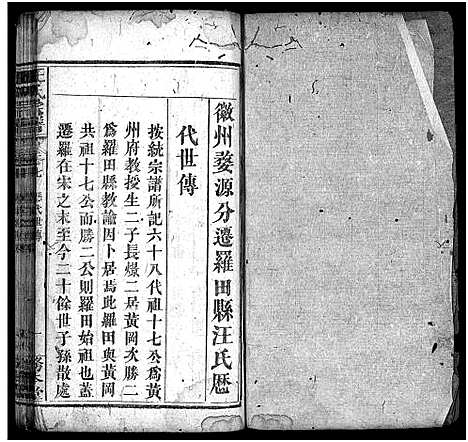 徽州婺源分遷羅田縣汪氏歷
代世傳
按統宗譜所記六十八代祖十七公為黃
州府教授生二子長燝二居黃岡次勝二
為羅田縣教諭因卜居焉此羅田與黃岡
共祖十七公而勝二公則羅田始祖也蓋
遷羅在宋之末至今二十餘世子孫散處